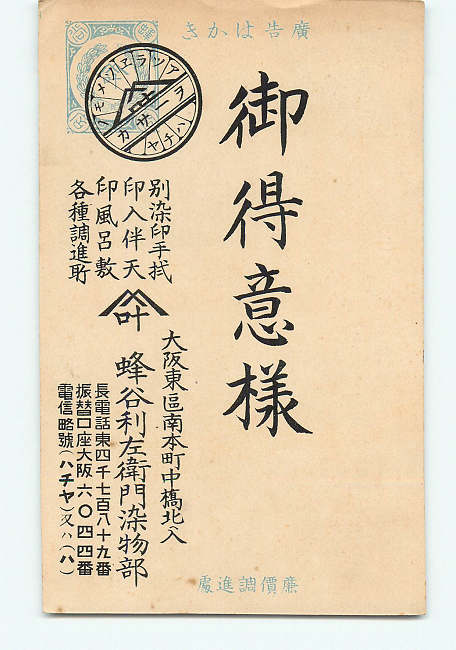 廣告はかき
御得意樣
別染印手拭
印入伴天
印風呂敷
各種調進所
叶
大阪東區南本町中橋北入
蜂谷利左衛門染物部
長電話東四千七百八十九番
振替口座大阪六〇四四番
電信略號(ハチヤ)又ハ(ハ)
廉價調進處